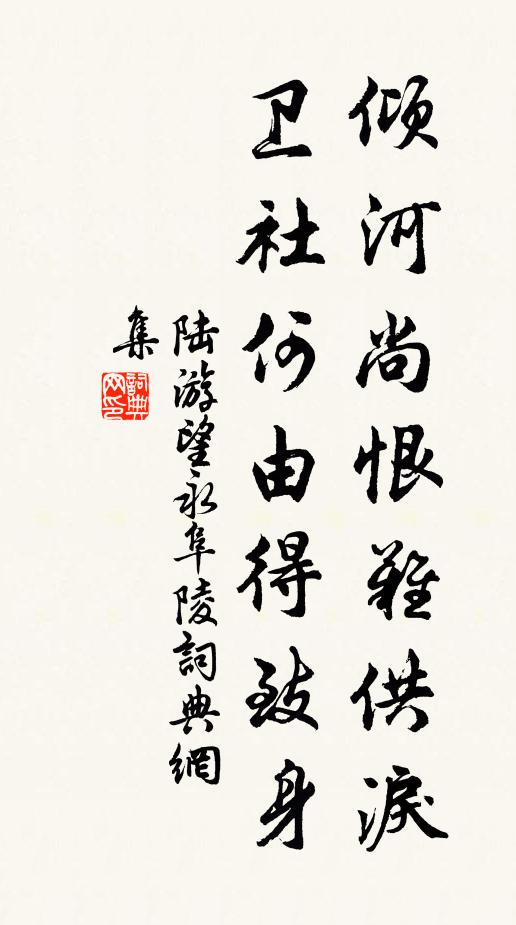 倾河尚恨难供淚
卫社何由得致身
陆游望永阜陵詞典網
集
詞典
网印